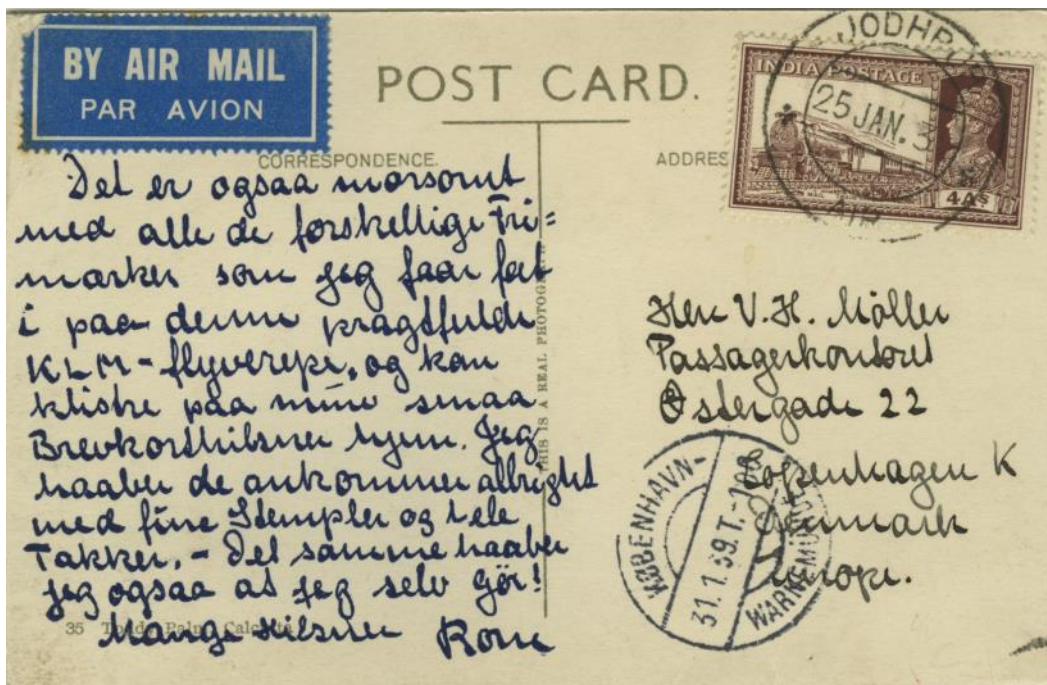 BY AIR MAIL
PAR AVION
POST CARD.
CORRESPONDENCE.
ADDRES
JODHPUR
25 JAN. 3
AIR
INDIA POSTAGE
4 As
Det er ogsaa morsomt
med alle de forskellige Fri=
mærker som jeg faar fat
i paa denne pragtfulde
KLM-flyverejse, og kan
klistre paa mine smaa
Brevkorthilsner hjem. Jeg
haaber de ankommer allright
med fine Stempler og hele
Takker. - Det samme haaber
jeg ogsaa at jeg selv gör!
Mange Hilsner
THIS IS A REAL PHOTOGRAPH
35 Toddy Palm, Calcutta
Herr V. H. Möller
Passagerkontoret
Østergade 22
Copenhagen K
Denmark
Europe.
KØBENHAVN-
31.1.39.T.
WARNEMÜNDE